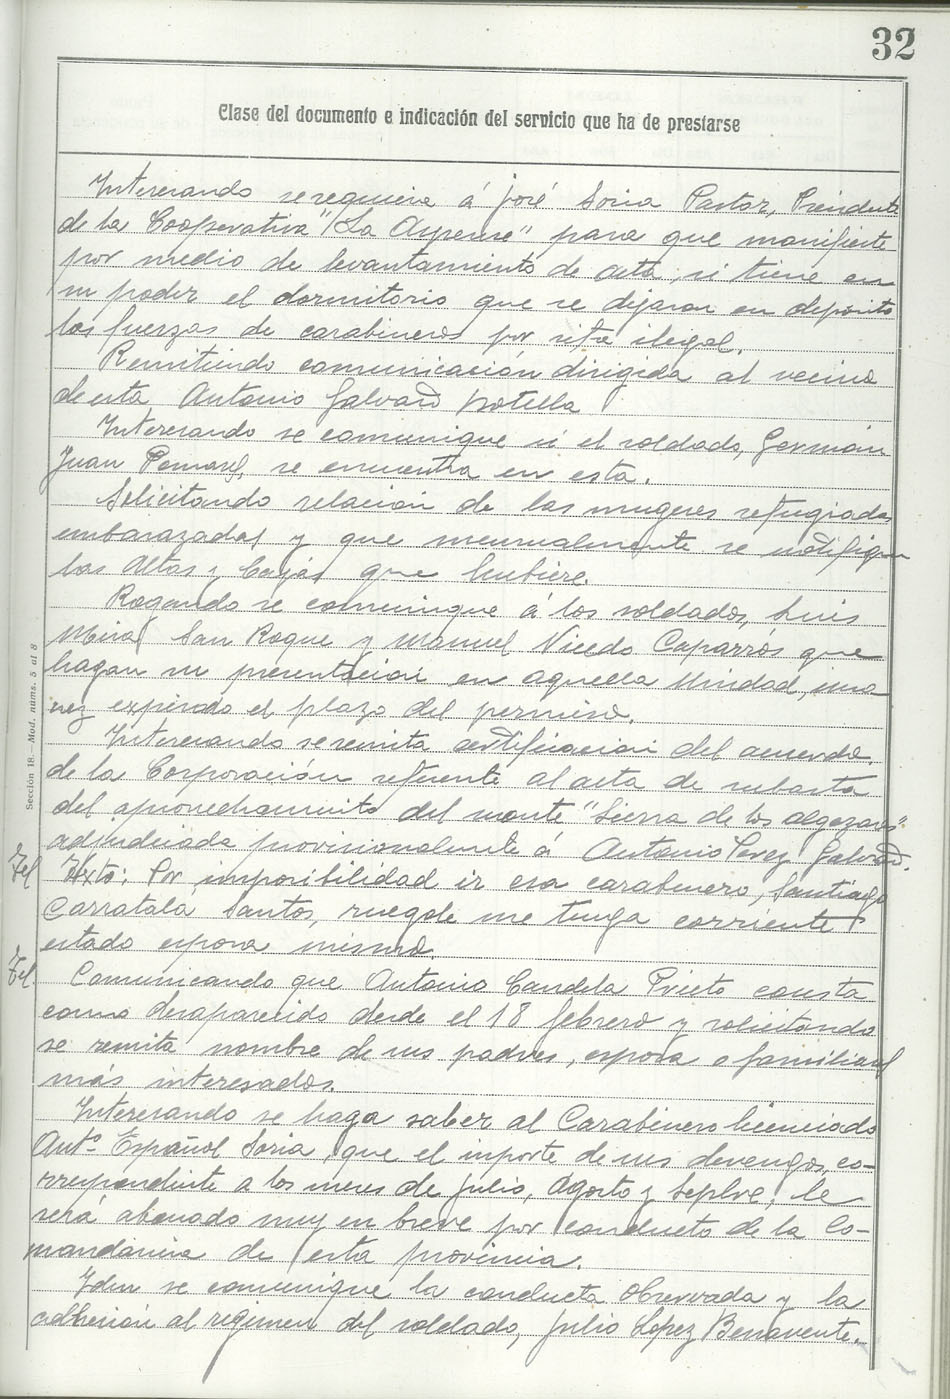 32
Clase del documento e indicación del servicio que ha de prestarse
Interesando se requiera á José Soria Pastor, Presidente
de la Cooperativa "La Aspense" para que manifieste
por medio de levantamiento de acta, si tiene en
su poder el dormitorio que se dejaron en deposito
las fuerzas de carabineros por rifa ilegal.
Remitiendo comunicación dirigida al vecino
de esta Antonio Galvañ Botella
Interesando se comunique si el soldado, Germán
Juan se encuentra en esta.
Solicitando relación de las mugeres refugiadas
embarazadas y que mensualmente se notifiquen
las Altas y Bajas que hubiere.
Rogando se comunique á los soldados, Luis
Mira San Roque y Manuel Vicedo Caparrós que
hagan su presentación en aquella Unidad, una
vez expirado el plazo del permiso.
Interesando se remita certificación del acuerdo
de la Corporación referente al acta de subasta
del aprovechamiento del monte "Sierra de los Algezares"
adjudicada provisionalmente á Antonio Perez Galvañ.
Tel Texto: Por imposibilidad ir esa carabinero, Santiago
Carratala Santos, ruegole me tenga corriente
estado esposa mismo.
Tel. Comunicando que Antonio Candela Prieto consta
como desaparecido desde el 18 febrero y solicitando
se remita nombre de sus padres, esposa o familiares
más interesados.
Interesando se haga saber al Carabinero licenciado
Antº Español Soria, que el importe de sus devengos, co-
rrespondiente a los meses de julio, Agosto y Sepbre, le
será abonado muy en breve por conducto de la Co-
mandancia de esta provincia.
Idem se comunique la conducta observada y la
adhesión al regimen del soldado, Julio López Benavente.
Sección 18.—Mod. núms. 5 al 8